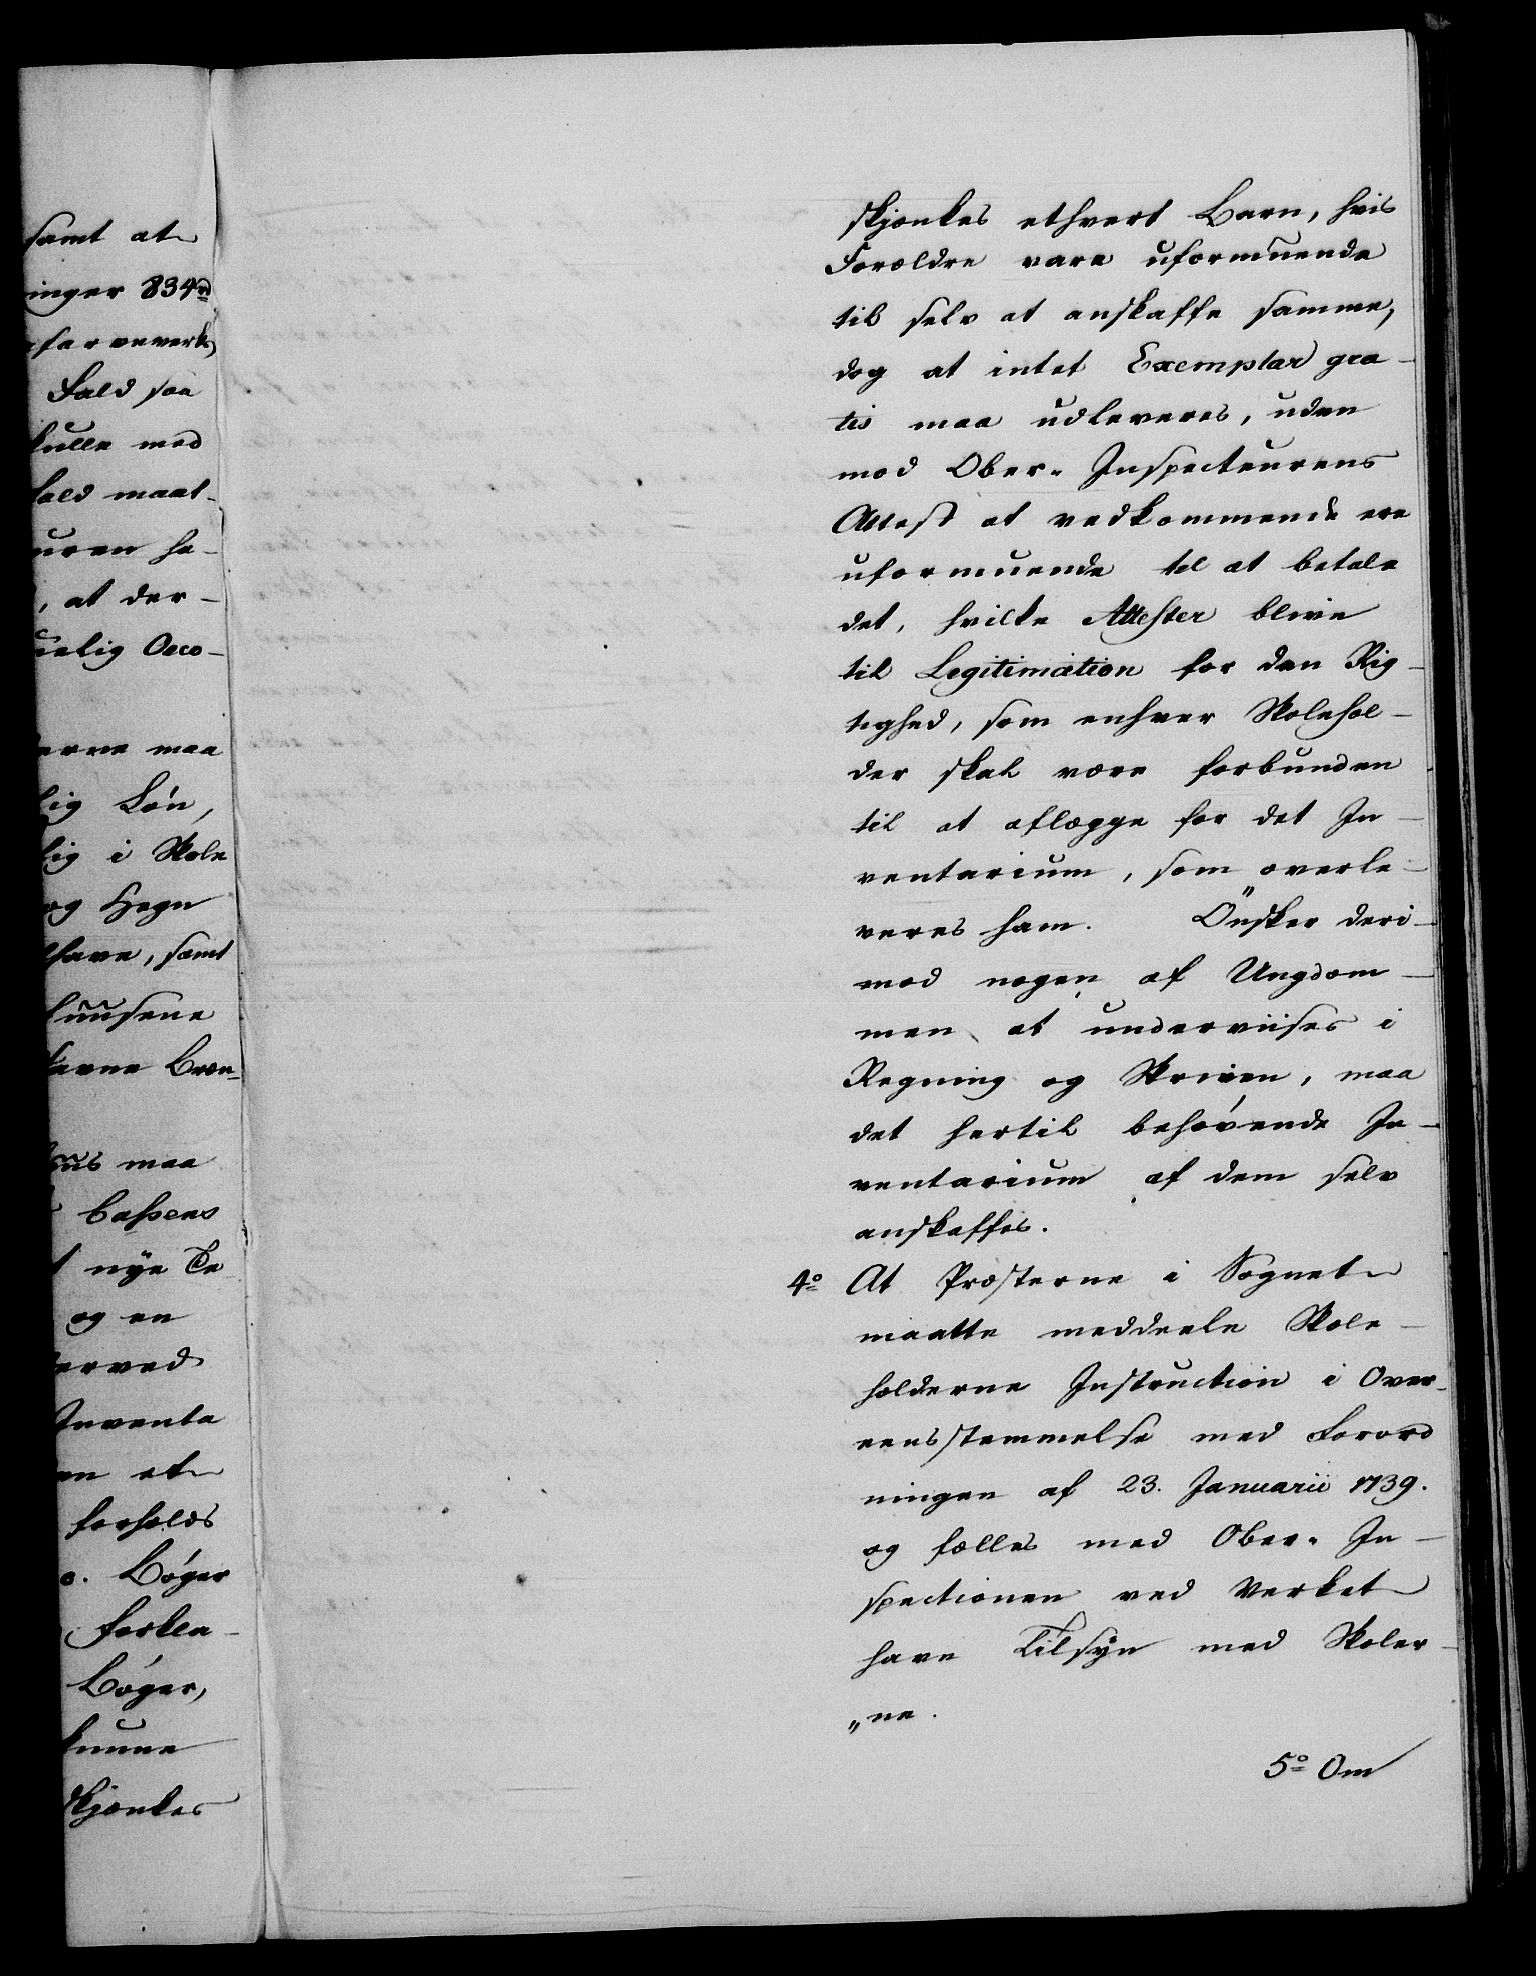 samt at
inger 834rd
farveverks
Fald saa
kulle med
fald maat-
uren ha-
, at der-
uelig Oeco-
erne maa
lig Løn,
lig i Skole
og Hegn
have, samt
huusene
erne Bræn-
uus maa
Cassens
nye Te
og en
erved
Inventa
en et
forholds
o. Bøger
forkla-
Bøger,
kunne
skjænkes
skjænkes ethvert Barn, hvis
Forældre vare uformuende
til selv at anskaffe samme,
dog at intet Exemplar gra-
tis maa udleveres, uden
mod Ober-Inspecteurens
Attest at vedkommende ere
uformuende til at betale
det, hvilke Attester blive
til Legitimation for den Rig-
tighed, som enhver Skolehol-
der skal være forbunden
til at aflægge for det In-
ventarium, som overle-
veres ham. Önsker deri-
mod nogen af Ungdom-
men at underviises i
Regning og Skriven, maa
det hertil behøvende In-
ventarium af dem selv
anskaffes.
4o At Præsterne i Sognet
maatte meddeele Skole-
holderne Instruction i Over-
eensstemmelse med Forord
ningen af 23. Januarii 1739.
og fælles med Ober-In-
spectionen ved Verket
have Tilsyn med Skoler-
"ne.
5o Om